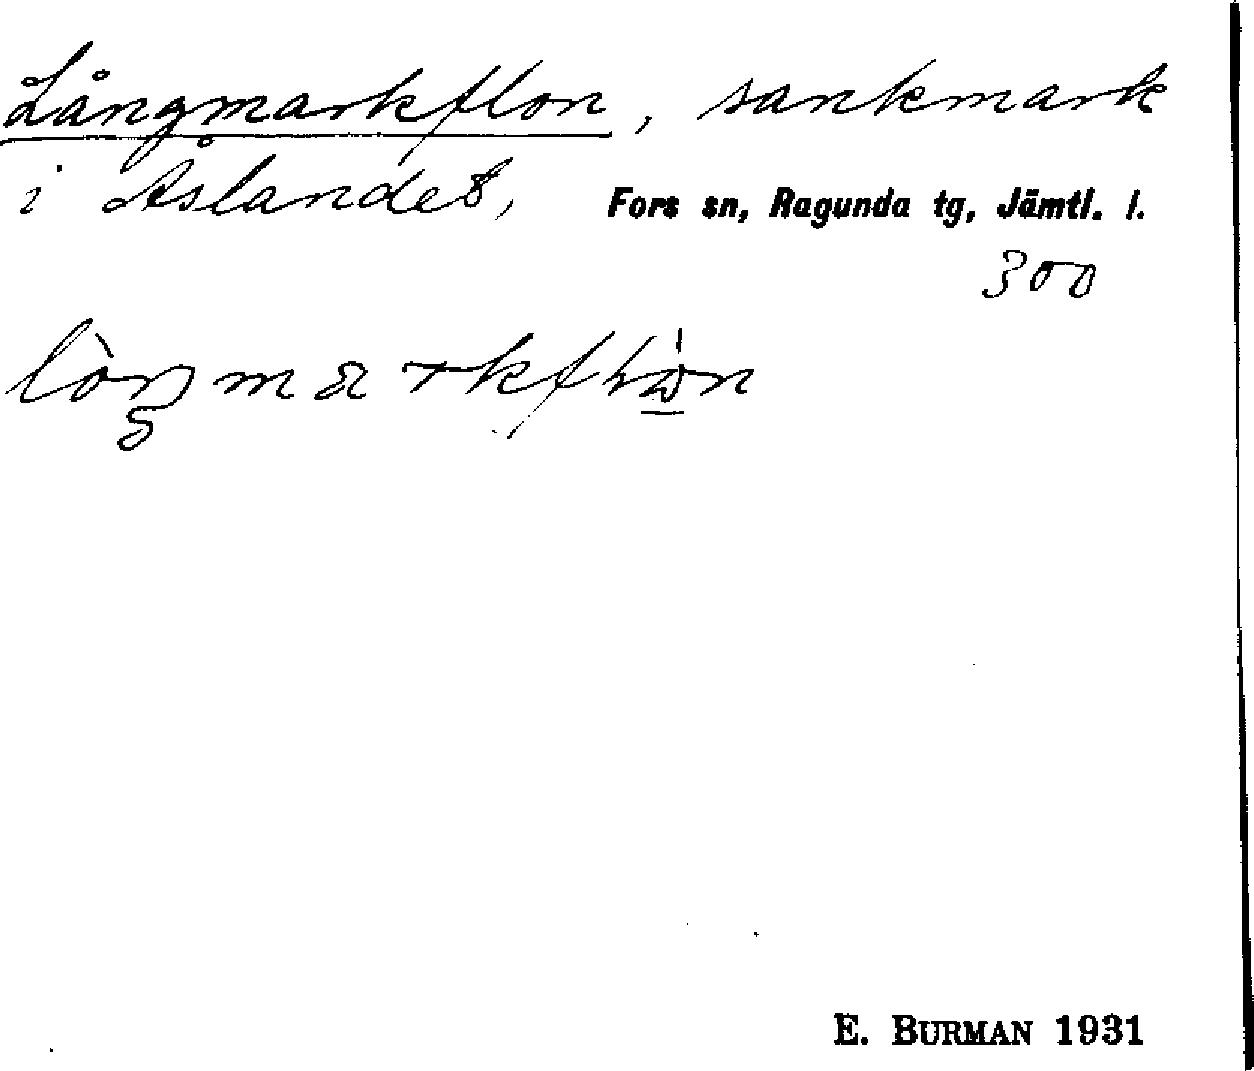 Långmarkflon, sankmark
i Åslandet, Fors sn, Ragunda tg, Jämtl. l.
300
E. BURMAN 1931